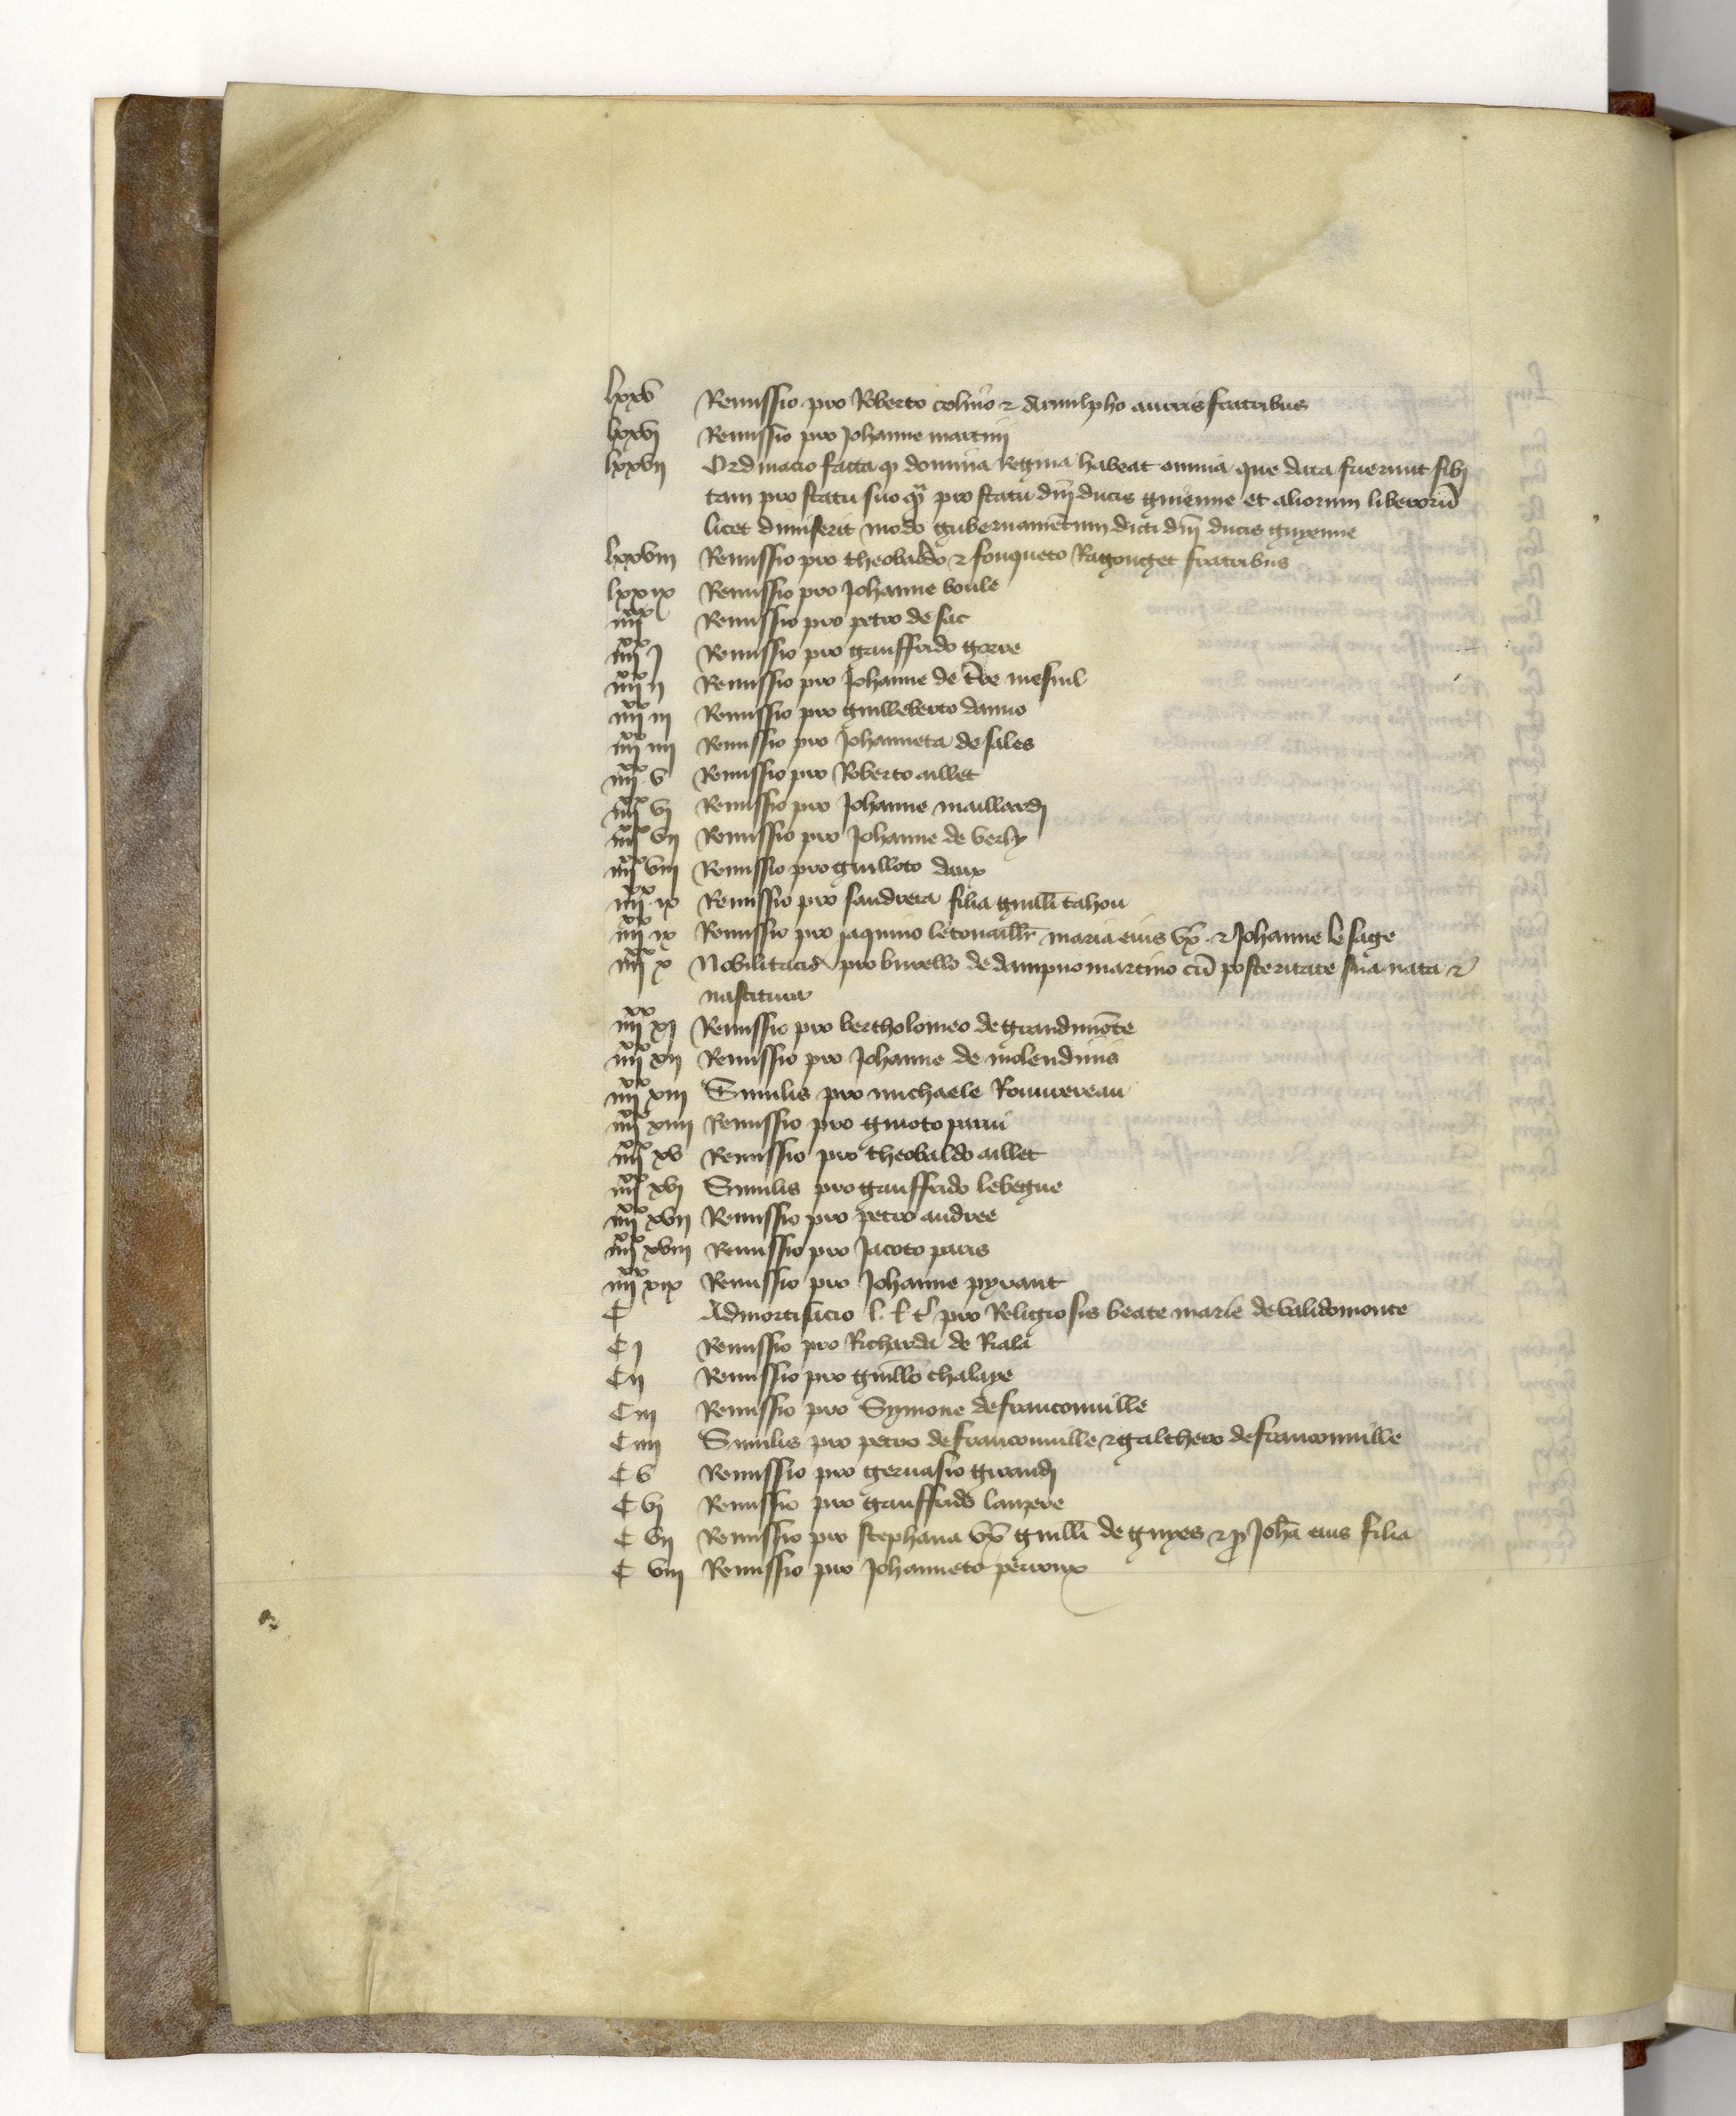 lxxv Remissio pro Roberto celino & Arnulpho autris fratribus
lxxvj Remissio pro Johanne martinj
lxxvij Ordinacio facta q domina Regina habeat omnia que data fuerunt sibj
tam pro statu suo q̄ pro statu dnj ducis guienne et aliorum liberorū
licet dimiserit modo gubernamētum dicti dnj ducis guyenne
lxxviij Remissio pro theobaldo & fouqueto Ragouget fratribus
lxxix Remissio pro Johanne boule
iiijxx Remissio pro petro de sac
iiijxx j Remissio pro gauffrido gorre
iiijxx ij Remissio pro Johanne de t̄re mesnil
iiijxx iij Remissio pro guilleberto danno
iiijxx iiij Remissio pro Johanneta de sales
iiijxx v Remissio pro Roberto aillet
iiijxx vj Remissio pro Johanne maillardj
iiijxx vij Remissio pro Johanne de verly
iiijxx viij Remissio pro guilloto daux
iiijxx ix Remissio pro sandrera filia guillī tahou
iiijxx ix Remissio pro jaquino letonaillr̄ maria eius vx̄ & Johanne le sage
iiijxx x Nobilitacio pro burello de dampnomartino cū posteritate sua nata &
nascitura
iiijxx xj Remissio pro bertholomeo de grandimōte
iiijxx xij Remissio pro Johanne de molendinis
iiijxx xiij Similis pro michaele Rouvereau
iiijxx xiiij Remissio pro guioto parvi
iiijxx xv Remissio pro theobaldo aillet
iiijxx xvj Similis pro gauffrido lebegue
iiijxx xvij Remissio pro petro andree
iiijxx xviij Remissio pro Jacoto paris
iiijxx xix Remissio pro Johanne pyvant
C Admortisacio l. l. t. pro Religiosis beate marie de validomonte
C j Remissio pro Richarda de Rala
C ij Remissio pro guillo chalaye
C iij Remissio pro Symone defranconville
C iiij Similis pro petro defranconville & galthero defranconville
C v Remissio pro gervasio giraudj
C vj Remissio pro gauffrido lanzere
C vij Remissio pro stephana vx̄ guillī de guyes & p Joh̄a eius filia
C viij Remissio pro Johanneto perroux